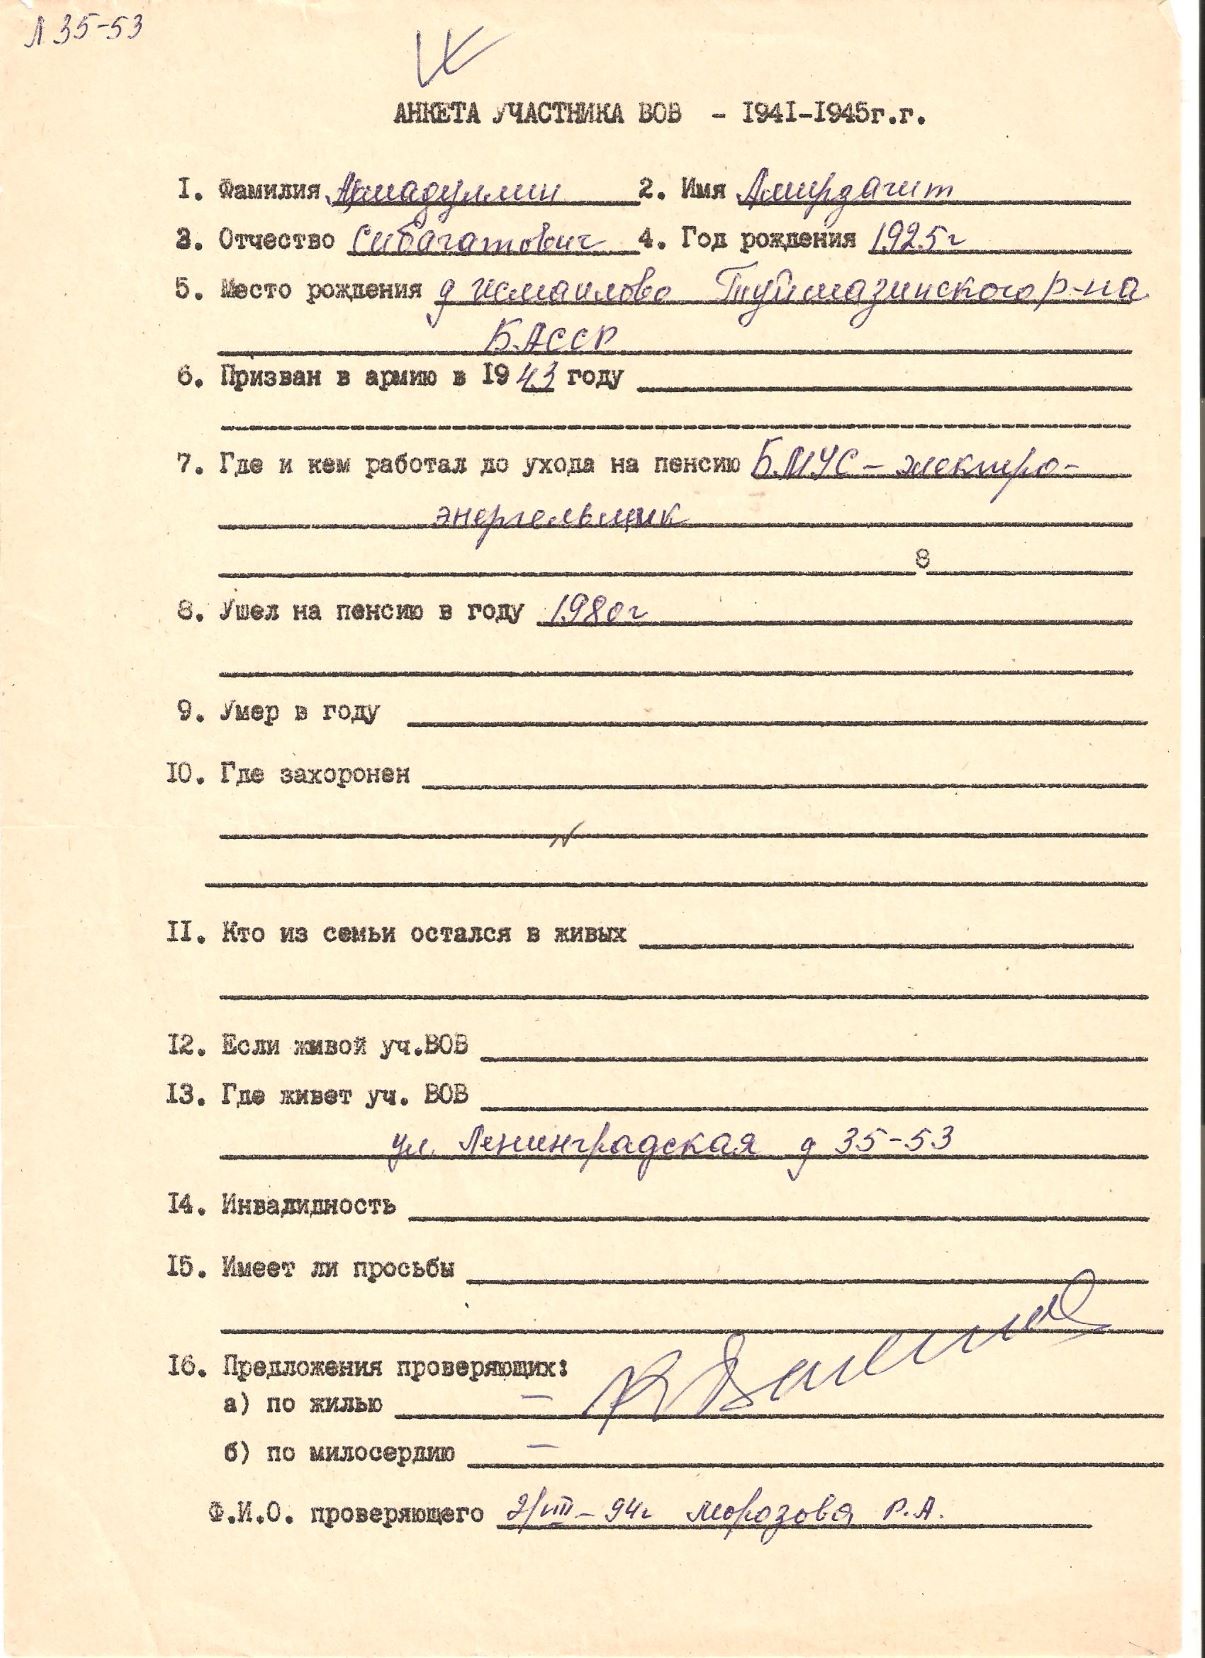 Л 35-53
АНКЕТА УЧАСТНИКА ВОВ - 1941-1945г.г.
1. Фамилия Ахмадуллин 2. Имя Амирзагит
3. Отчество Сибагатович 4. Год рождения 1925г
5. Место рождения д Исмаилово Туймазинского р-на
БАССР
6. Призван в армию в 1943 году
7. Где и кем работал до ухода на пенсию БМУС - электро-
8
8. Ушел на пенсию в году 1980г
9. Умер в году
10. Где захоронен
11. Кто из семьи остался в живых
12. Если живой уч.ВОВ
13. Где живет уч. ВОВ
ул. Ленинградская д 35-53
14. Инвалидность
15. Имеет ли просьбы
16. Предложения проверяющих:
а) по жилью —
б) по милосердию —
Ф.И.О. проверяющего 2/VIII - 94г Морозова Р.А.